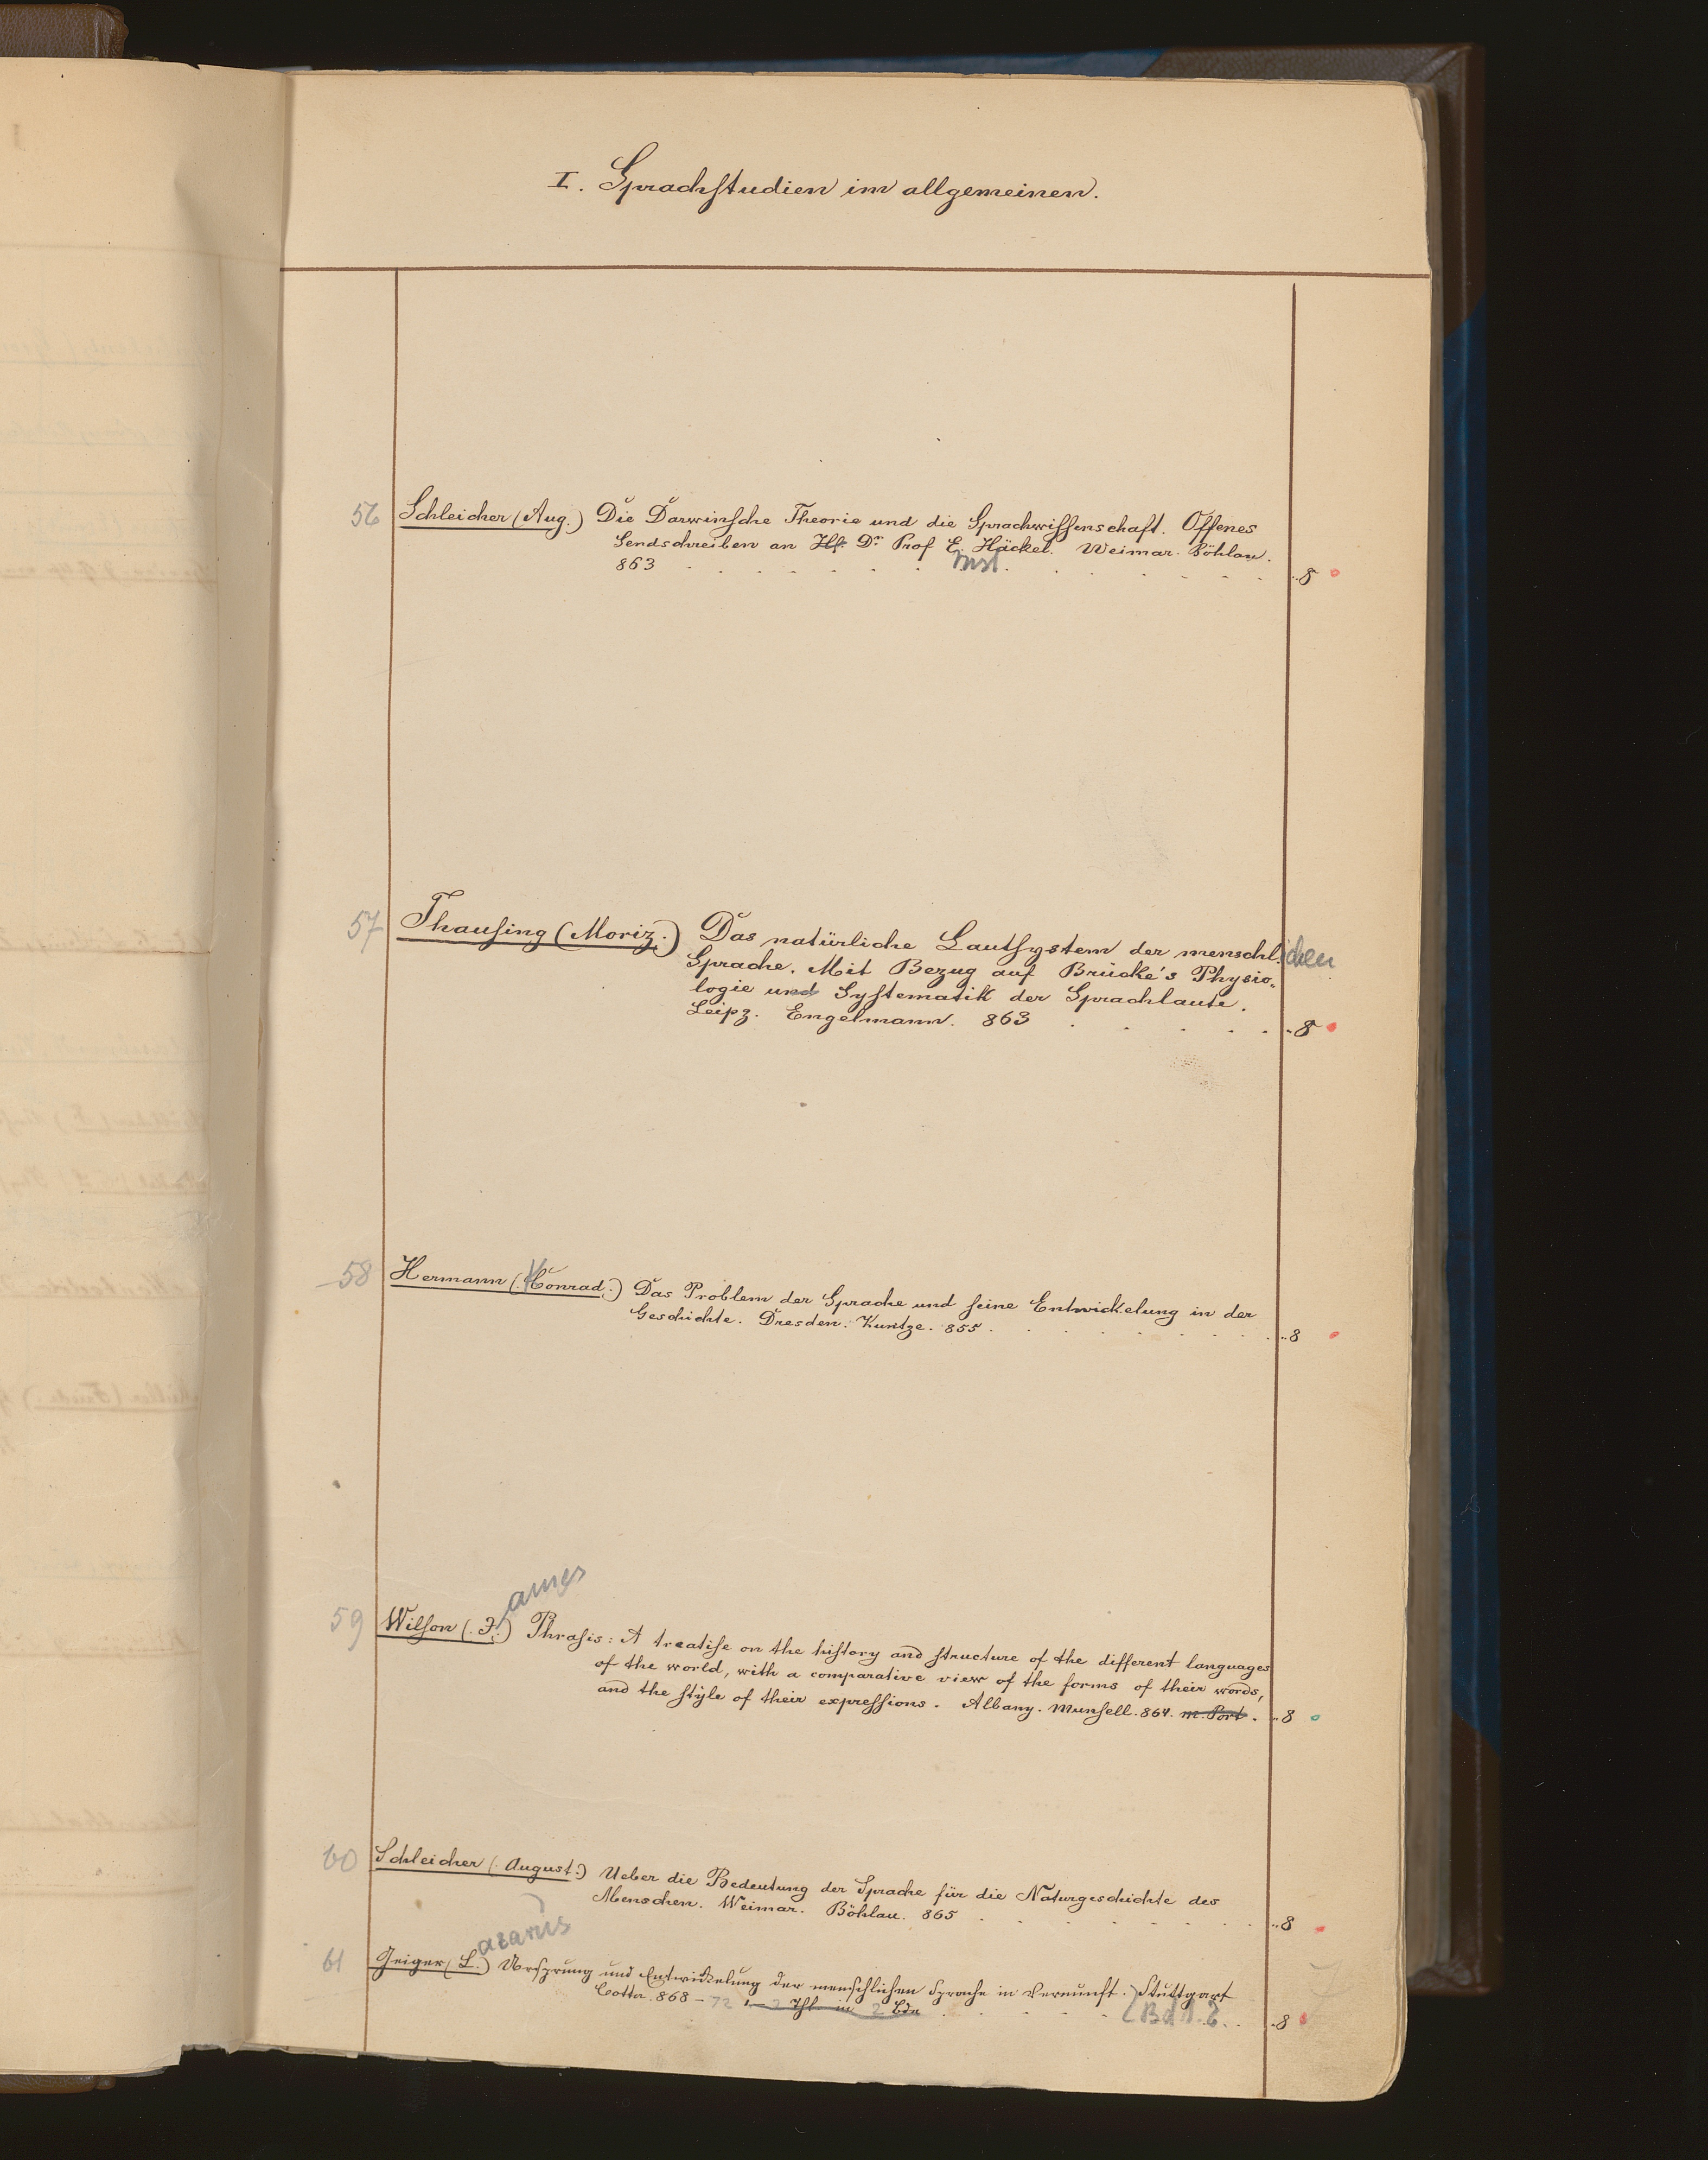 I. Sprachstudien im allgemeinen.
56 Schleicher (Aug.) Die Darwinsche Theorie und die Sprachwissenschaft. Offenes
Sendschreiben an Hr. Dr. Prof E. Häckel. Weimar. Böhlau.
rnst
863 . . . . . . . . . . . . . . . ..8
57 Thausing (Moriz.) Das natürliche Lautsystem der menschl.ichen
Sprache. Mit Bezug auf Brücke's Physio„
logie und Systematik der Sprachlaute.
Leipz. Engelmann. 863 . . . . . ..8
58 Hermann (Conrad.) Das Problem der Sprache und seine Entwickelung in der
Geschichte. Dresden. Kuntze. 855 . . . . . . . . ..8
ames
59 Wilson (J.) Phrasis: A treatise on the history and structure of the different languages
of the world, with a comparative view of the forms of their words,
and the style of their expressions. Albany. Munsell. 864. m. Port. ..8
60 Schleicher (August.) Ueber die Bedeutung der Sprache für die Naturgeschichte des
Menschen. Weimar. Böhlau. 865 . . . . . . . ..8
azarus
61 Geiger (L.) Ursprung und Entwickelung der menschlichen Sprache in Vernunft. Stuttgart
Cotta. 868–72 2 Thl in 2 Bde . . . . (Bd 1. 2. . . ..8